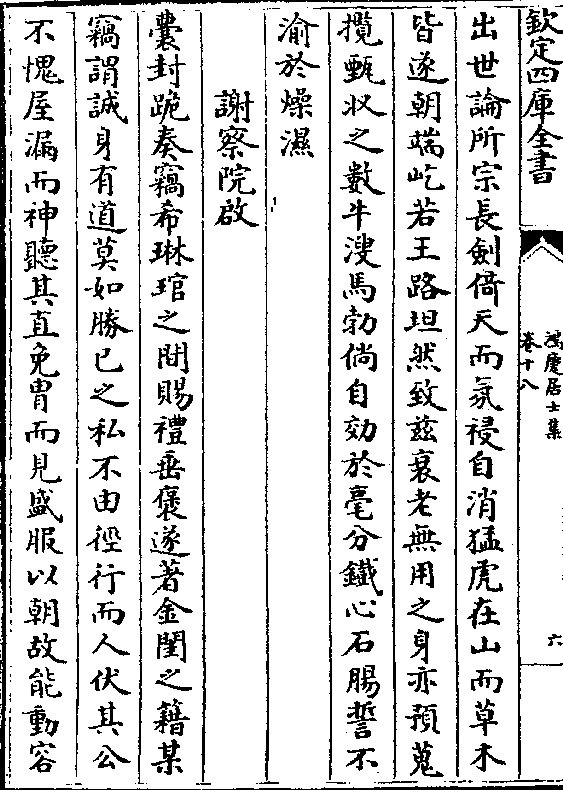 欽定四庫全書
鴻慶居士集
卷十八
六
出世論所宗長劍倚天而氛祲自消猛虎在山而草木
皆遂朝端屹若王路坦然致兹衰老無用之身亦預蒐
攬甄收之數牛溲馬勃倘自効於毫分鐵心石腸誓不
渝於燥濕
謝察院啟
囊封跪奏竊希琳琯之閒賜禮垂褒遂著金閨之籍某
竊謂誠身有道莫如勝已之私不由徑行而人伏其公
不愧屋漏而神聽其直免胄而見盛服以朝故能動容